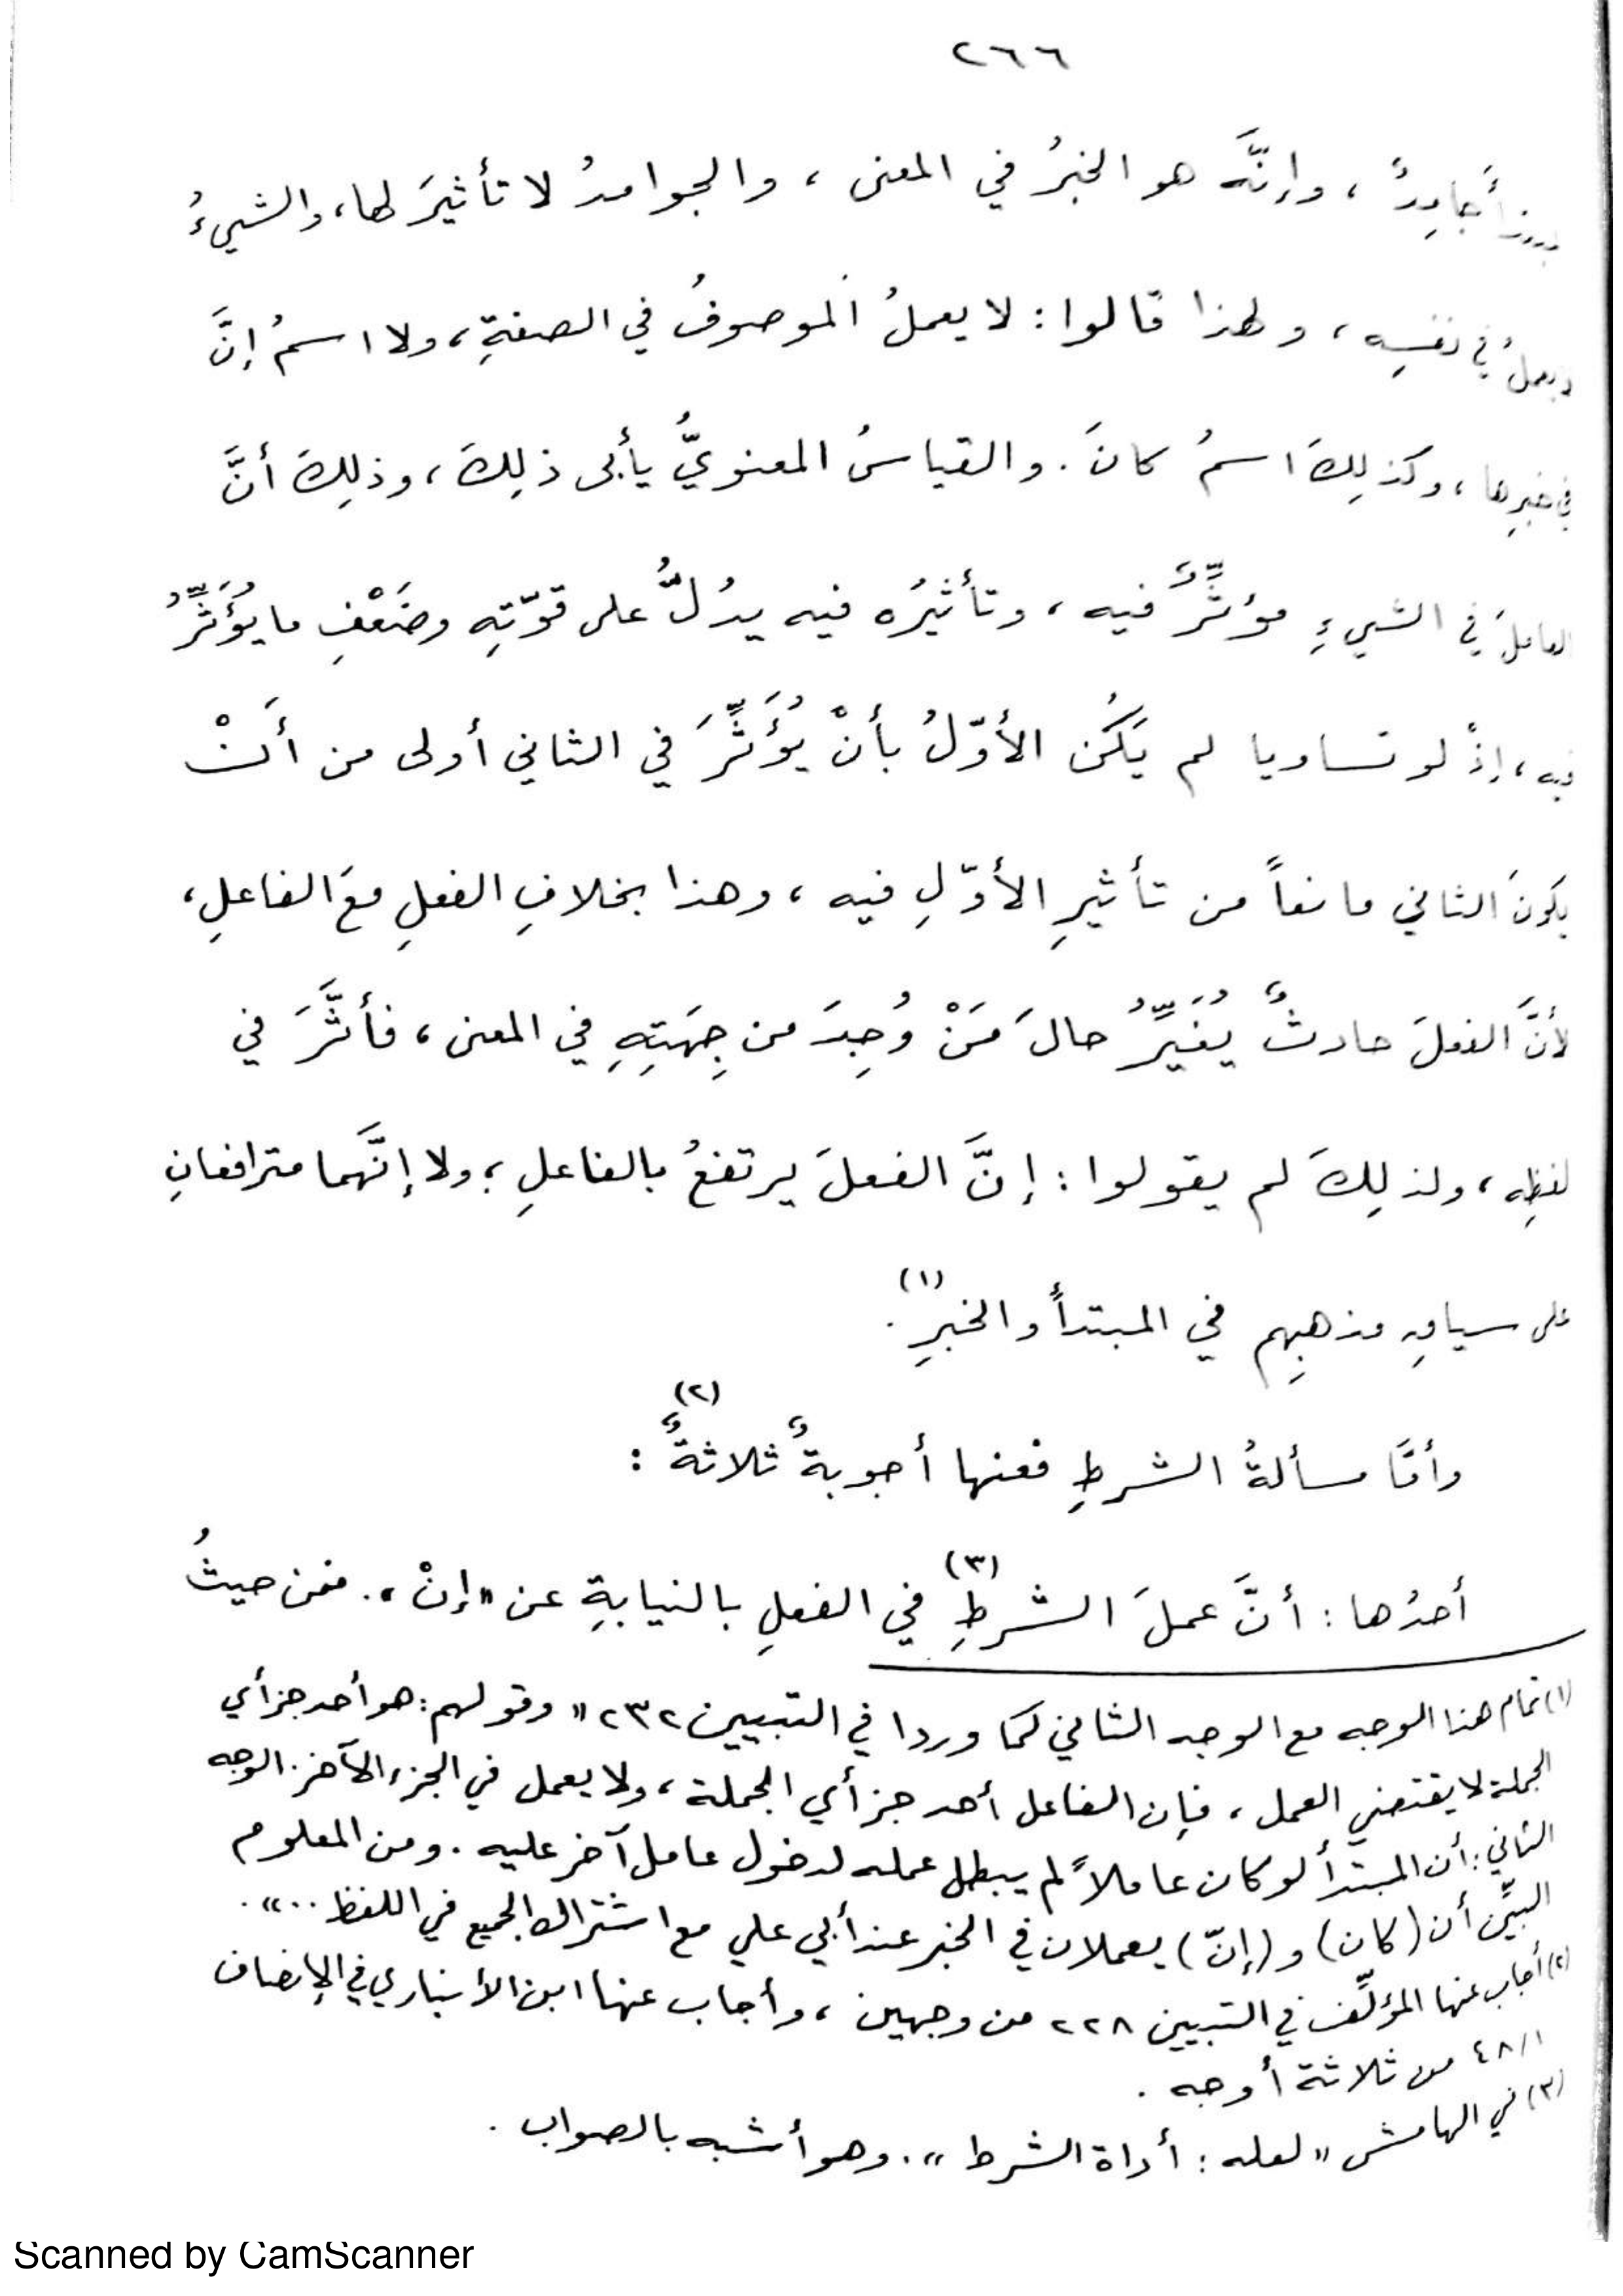 ٢٦٦
جامدٌ، وإنَّه هو الخبرُ في المعنى، والجوامدُ لا تأثيرَ لها، والشيءُ
يعملُ في نفسِهِ، ولهذا قالوا: لا يعملُ الموصوفُ في الصفةِ، ولا اسمُ إنَّ
في خبرِها، وكذلِكَ اسمُ كانَ. والقياسُ المعنويُّ يأبى ذلِكَ، وذلِكَ أنَّ
العاملَ في الشيءِ مؤثِّرٌ فيه، وتأثيرُه فيه يدُلُّ على قوّتِهِ وضَعْفِ ما يُؤَثِّرُ
فيه، إذْ لو تساويا لم يَكُن الأوّلُ بأنْ يُؤَثِّرَ في الثاني أولى من أَنْ
يكونَ الثاني مانعاً من تأثيرِ الأوّلِ فيه، وهذا بخلافِ الفعلِ معَ الفاعلِ،
لأنَّ الفعلَ حادثٌ يُغَيِّرُ حالَ مَنْ وُجِدَ من جِهَتِهِ في المعنى، فأثَّرَ في
لفظِهِ، ولذلِكَ لم يقولوا: إنَّ الفعلَ يرتفعُ بالفاعلِ، ولا إنَّهما مترافعانِ
على سياقِ مذهبِهم في المبتدأ والخبرِ(١).
وأمَّا مسألةُ الشرطِ فعنها أجوبةٌ ثلاثةٌ(٢):
أحدُها: أنَّ عملَ الشرطِ(٣) في الفعلِ بالنيابةِ عن «إنْ». فمن حيثُ
(١) تمام هذا الوجه مع الوجه الثاني كما وردا في التبيين ٢٣٢ «وقولهم: هو أحد جزأي
الجملة لا يقتضي العمل، فإن الفاعل أحد جزأي الجملة، ولا يعمل في الجزء الآخر. الوجه
الثاني: أن المبتدأ لو كان عاملاً لم يبطل عمله لدخول عامل آخر عليه. ومن المعلوم
البيِّن أن (كان) و (إنّ) يعملان في الخبر عند أبي علي مع اشتراك الجميع في اللفظ..».
(٢) أجاب عنها المؤلِّف في التبيين ٢٢٨ من وجهين، وأجاب عنها ابن الأنباري في الإنصاف
٤٨/١ من ثلاثة أوجه.
(٣) في الهامش «لعله: أداة الشرط». وهو أشبه بالصواب.
Scanned by CamScanner